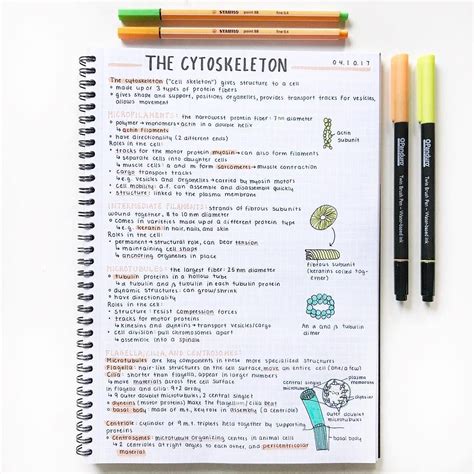 STABILO point 88 fine 0.4
STABILO point 88 fine 0.4
THE CYTOSKELETON
04.10.17
The cytoskeleton ("cell skeleton") gives structure to a cell
• made up of 3 types of protein fibers
• gives shape and support, positions organelles, provides transport tracks for vesicles,
allows movement
MICROFILAMENTS: the narrowest protein fiber: 7nm diameter
• polymer → monomers: actin in a double helix
↳ actin filaments
• have directionality (2 different ends)
Roles in the cell:
• tracks for the motor protein myosin → can also form filaments
↳ separate cells into daughter cells
↳ muscle cells: a and m form sarcomeres → muscle contraction
• cargo transport tracks
↳ e.g. vesicles and organelles → carried by myosin motors
• cell mobility: a.f. can assemble and disassemble quickly
• structure: linked to the plasma membrane
actin
subunit
INTERMEDIATE FILAMENTS: strands of fibrous subunits
wound together, 8 to 10 nm diameter
• comes in varieties made up of a different protein type
↳ e.g. keratin in hair, nails, and skin
Roles in the cell:
• permanent → structural role, can bear tension
↳ maintaining cell shape
↳ anchoring organelles in place
fibrous subunit
(keratins coiled tog-
ether)
MICROTUBULES: the largest fiber: 25 nm diameter
• tubulin proteins in a hollow tube
↳ α tubulin and β tubulin in each tubulin protein
• dynamic structures: can grow/shrink
• have directionality
Roles in the cell:
• structure: resist compression forces
• tracks for motor proteins
↳ kinesins and dyneins → transport vesicles/cargo
• cell division: pull chromosomes apart
↳ assemble into a structure: spindle
An α and β tubulin
subunit
FLAGELLA, CILIA, AND CENTROSOMES:
Microtubules are key components in these more specialized structures
Flagella: hair-like structures on the cell surface, move an entire cell (one/few)
Cilia: shorter than flagella, appear in larger numbers
↳ move materials across the cell surface
in flagella and cilia: 9+2 array
↳ 9 outer doublet microtubules, 2 central singlet
• dyneins (motor proteins) make the flagellum/cilia beat
• basal body: made of m.t., key role in assembly (a centriole)
Centriole: cylinder of 9 m.t. triplets held together by supporting
proteins
• Centrosomes: microtubule organizing centers in animal cells
↳ 2 centrioles at right angles to each other, and pericentriolar
material
central singlet
microtubules
plasma
membrane
outer doublet
microtubules
basal body
OPandam Twin Brush Pen • Water-based Ink
OPandam Twin Brush Pen • Water-based Ink